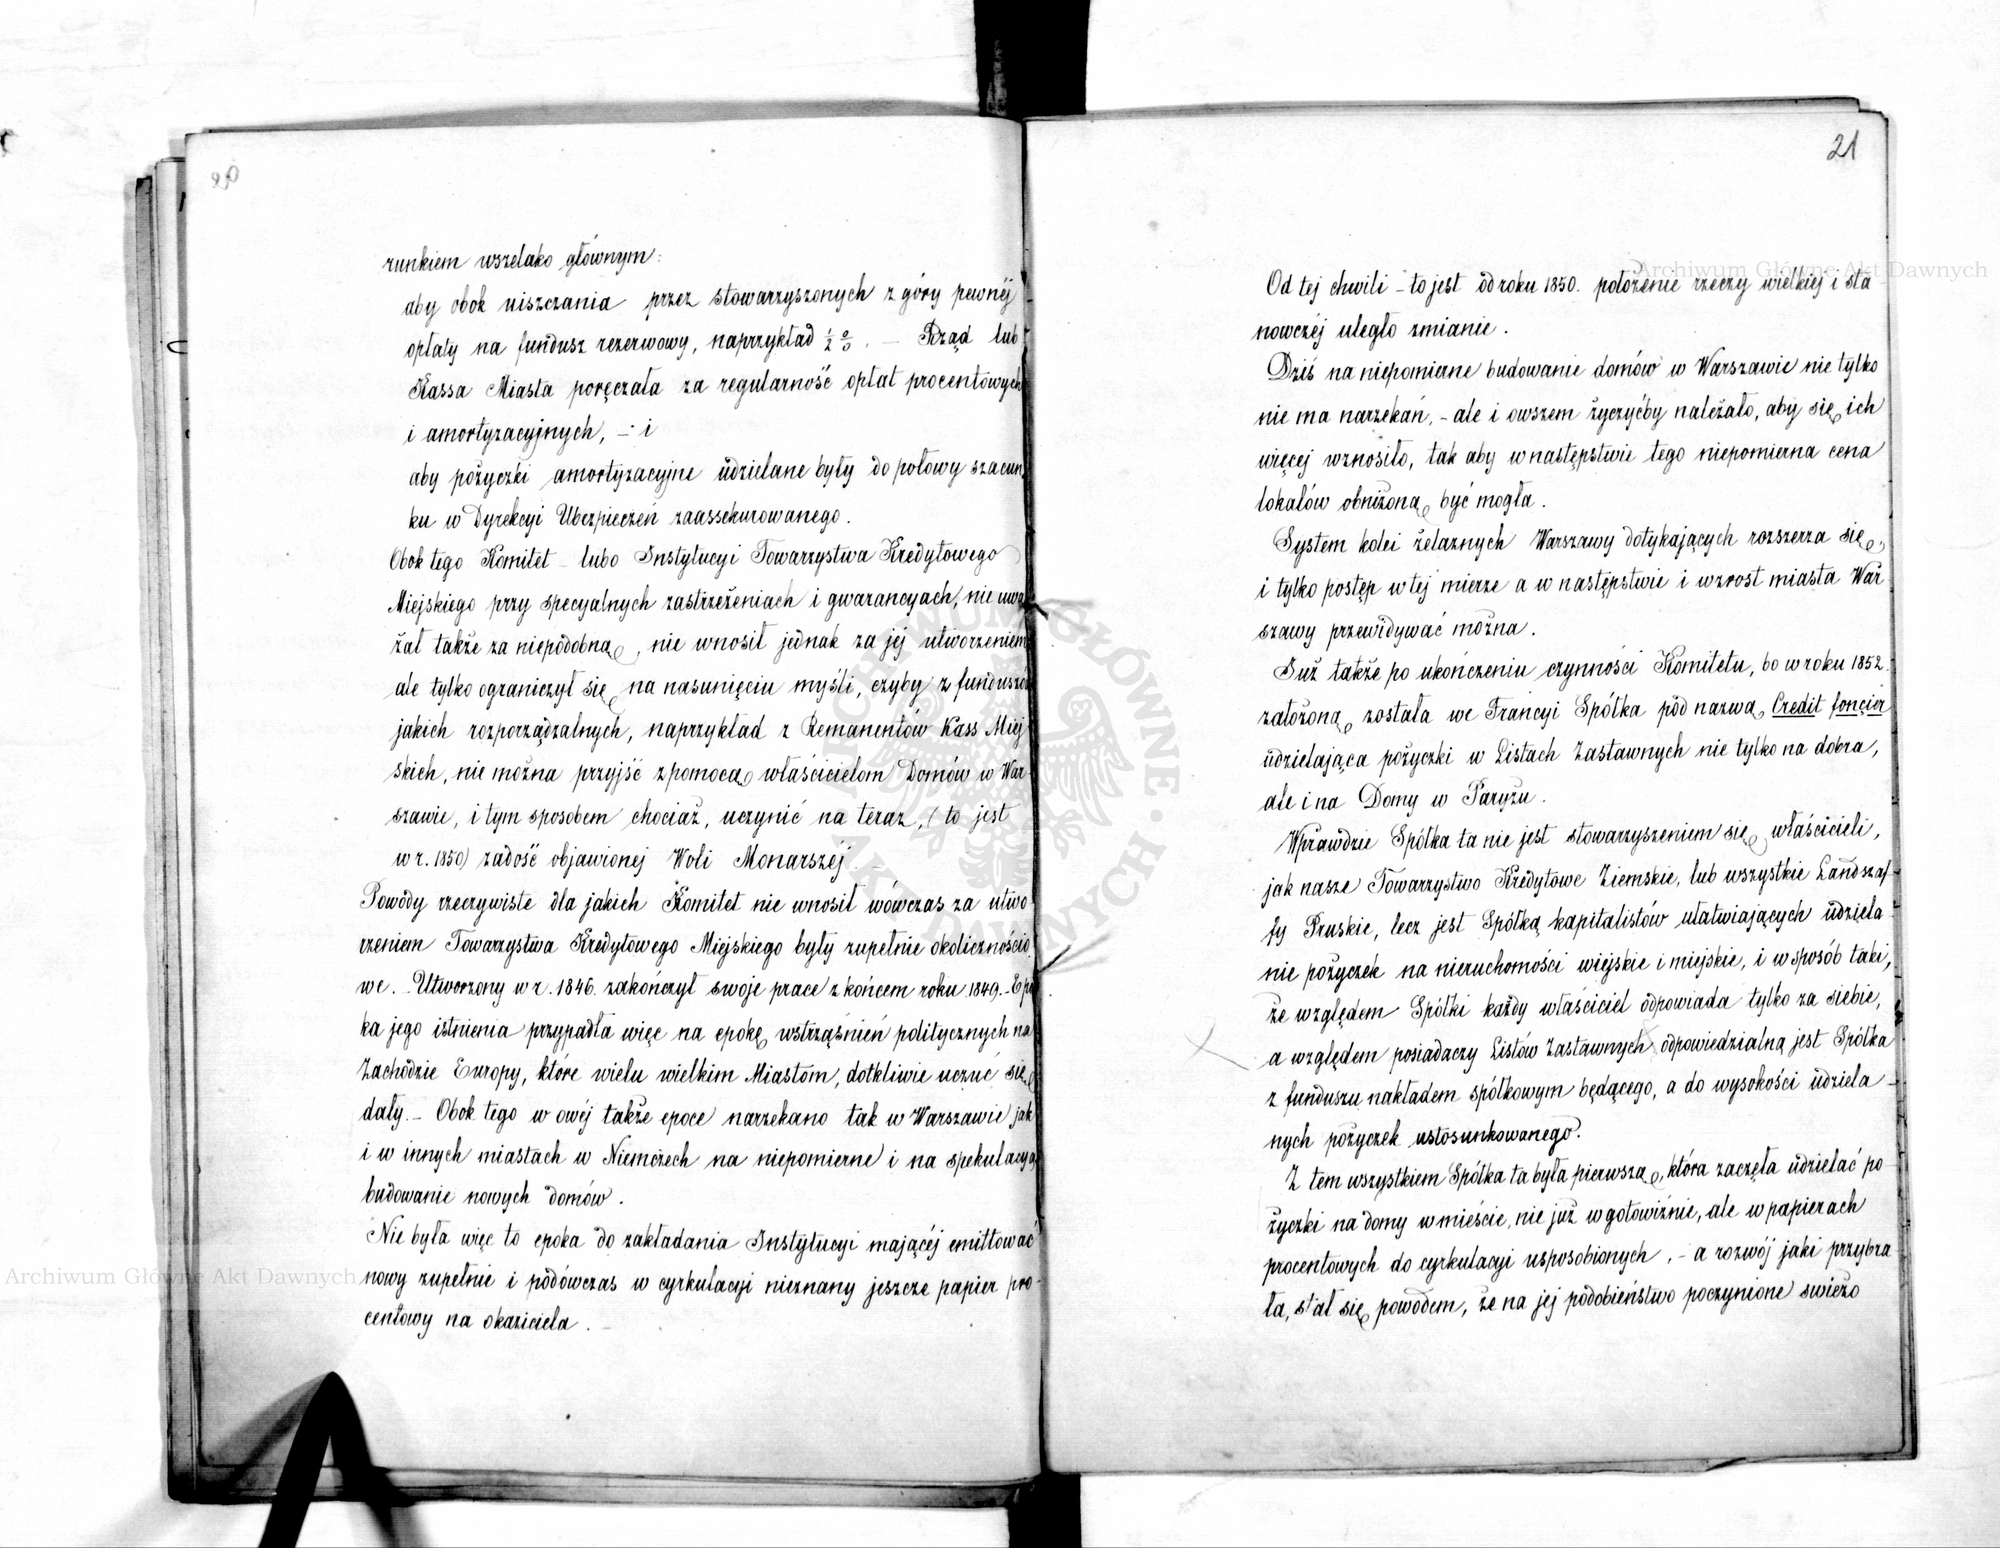 runkiem wszelako głównym:
aby obok uiszczania przez stowarzyszonych z góry pewnéj
opłaty na fundusz rezerwowy, naprzykład ½ %. — Rząd lub
Kassa Miasta poręczała za regularność opłat procentowych
i amortyzacyjnych, — i
aby pożyczki amortyzacyjne udzielane były do połowy szacun
ku w Dyrekcyi Ubezpieczeń zaassekurowanego.
Obok tego Komitet lubo Instytucyi Towarzystwa Kredytowego
Miejskiego przy specyalnych zastrzeżeniach i gwarancyach, nie uwa
żał także za niepodobną, nie wnosił jednak za jéj utworzeniem
ale tylko ograniczył się na nasunięciu myśli, czyby z funduszów
jakich rozporządzalnych, naprzykład z Remanentów Kass Miej
skich, nie można przyjść z pomocą właścicielom Domów w War
szawie, i tym sposobem chociaż, uczynić na teraz, (to jest
w r. 1850) zadość objawionej Woli Monarszéj.
Powody rzeczywiste dla jakich Komitet nie wnosił wówczas za utwo
rzeniem Towarzystwa Kredytowego Miejskiego były zupełnie okolicznościo
we. — Utworzony w r. 1846. zakończył swoje prace z końcem roku 1849. — Epo
ka jego istnienia przypadła więc na epokę wstrząśnień politycznych na
Zachodzie Europy, które wielu wielkim Miastom, dotkliwie uczuć się
dały. — Obok tego w owéj także epoce narzekano tak w Warszawie jak
i w innych miastach w Niemczech na niepomierne i na spekulacyą
budowanie nowych domów.
Nie była więc to epoka do zakładania Instytucyi mającéj emittować
nowy zupełnie i podówczas w cyrkulacyi nieznany jeszcze papier pro-
centowy na okaziciela.
21
Od tej chwili — to jest od roku 1850. położenie rzeczy wielkiej i sta
nowczéj uległo zmianie.
Dziś na niepomierne budowanie domów w Warszawie nie tylko
nie ma narzekań, — ale i owszem życzyćby należało, aby się ich
więcej wznosiło, tak aby w następstwie tego niepomierna cena
lokalów obniżoną być mogła.
System kolei żelaznych Warszawy dotykających rozszerza się,
i tylko postęp w tej mierze a w następstwie i wzrost miasta War
szawy przewidywać można.
Już także po ukończeniu czynności Komitetu, bo w roku 1852.
założoną została we Francyi Spółka pod nazwą Credit foncier
udzielająca pożyczki w Listach Zastawnych nie tylko na dobra,
ale i na Domy w Paryżu.
Wprawdzie Spółka ta nie jest stowarzyszeniem się właścicieli,
jak nasze Towarzystwo Kredytowe Ziemskie, lub wszystkie Landszaf-
ty Pruskie, lecz jest Spółką kapitalistów ułatwiających udziela-
nie pożyczek na nieruchomości wiejskie i miejskie, i w sposób taki,
że względem Spółki każdy właściciel odpowiada tylko za siebie,
a względem posiadaczy Listów Zastawnych odpowiedzialną jest Spółka
z funduszu nakładem spółkowym będącego, a do wysokości udziela-
nych pożyczek ustosunkowanego.
Z tem wszystkiem Spółka ta była pierwszą, która zaczęła udzielać po
życzki na domy w mieście, nie już w gotowiźnie, ale w papierach
procentowych do cyrkulacyi usposobionych, — a rozwój jaki przybra
ła, stał się powodem, że na jej podobieństwo poczynione świeżo
Archiwum Główne Akt Dawnych
Archiwum Główne Akt Dawnych
ARCHIWUM GŁÓWNE AKT DAWNYCH